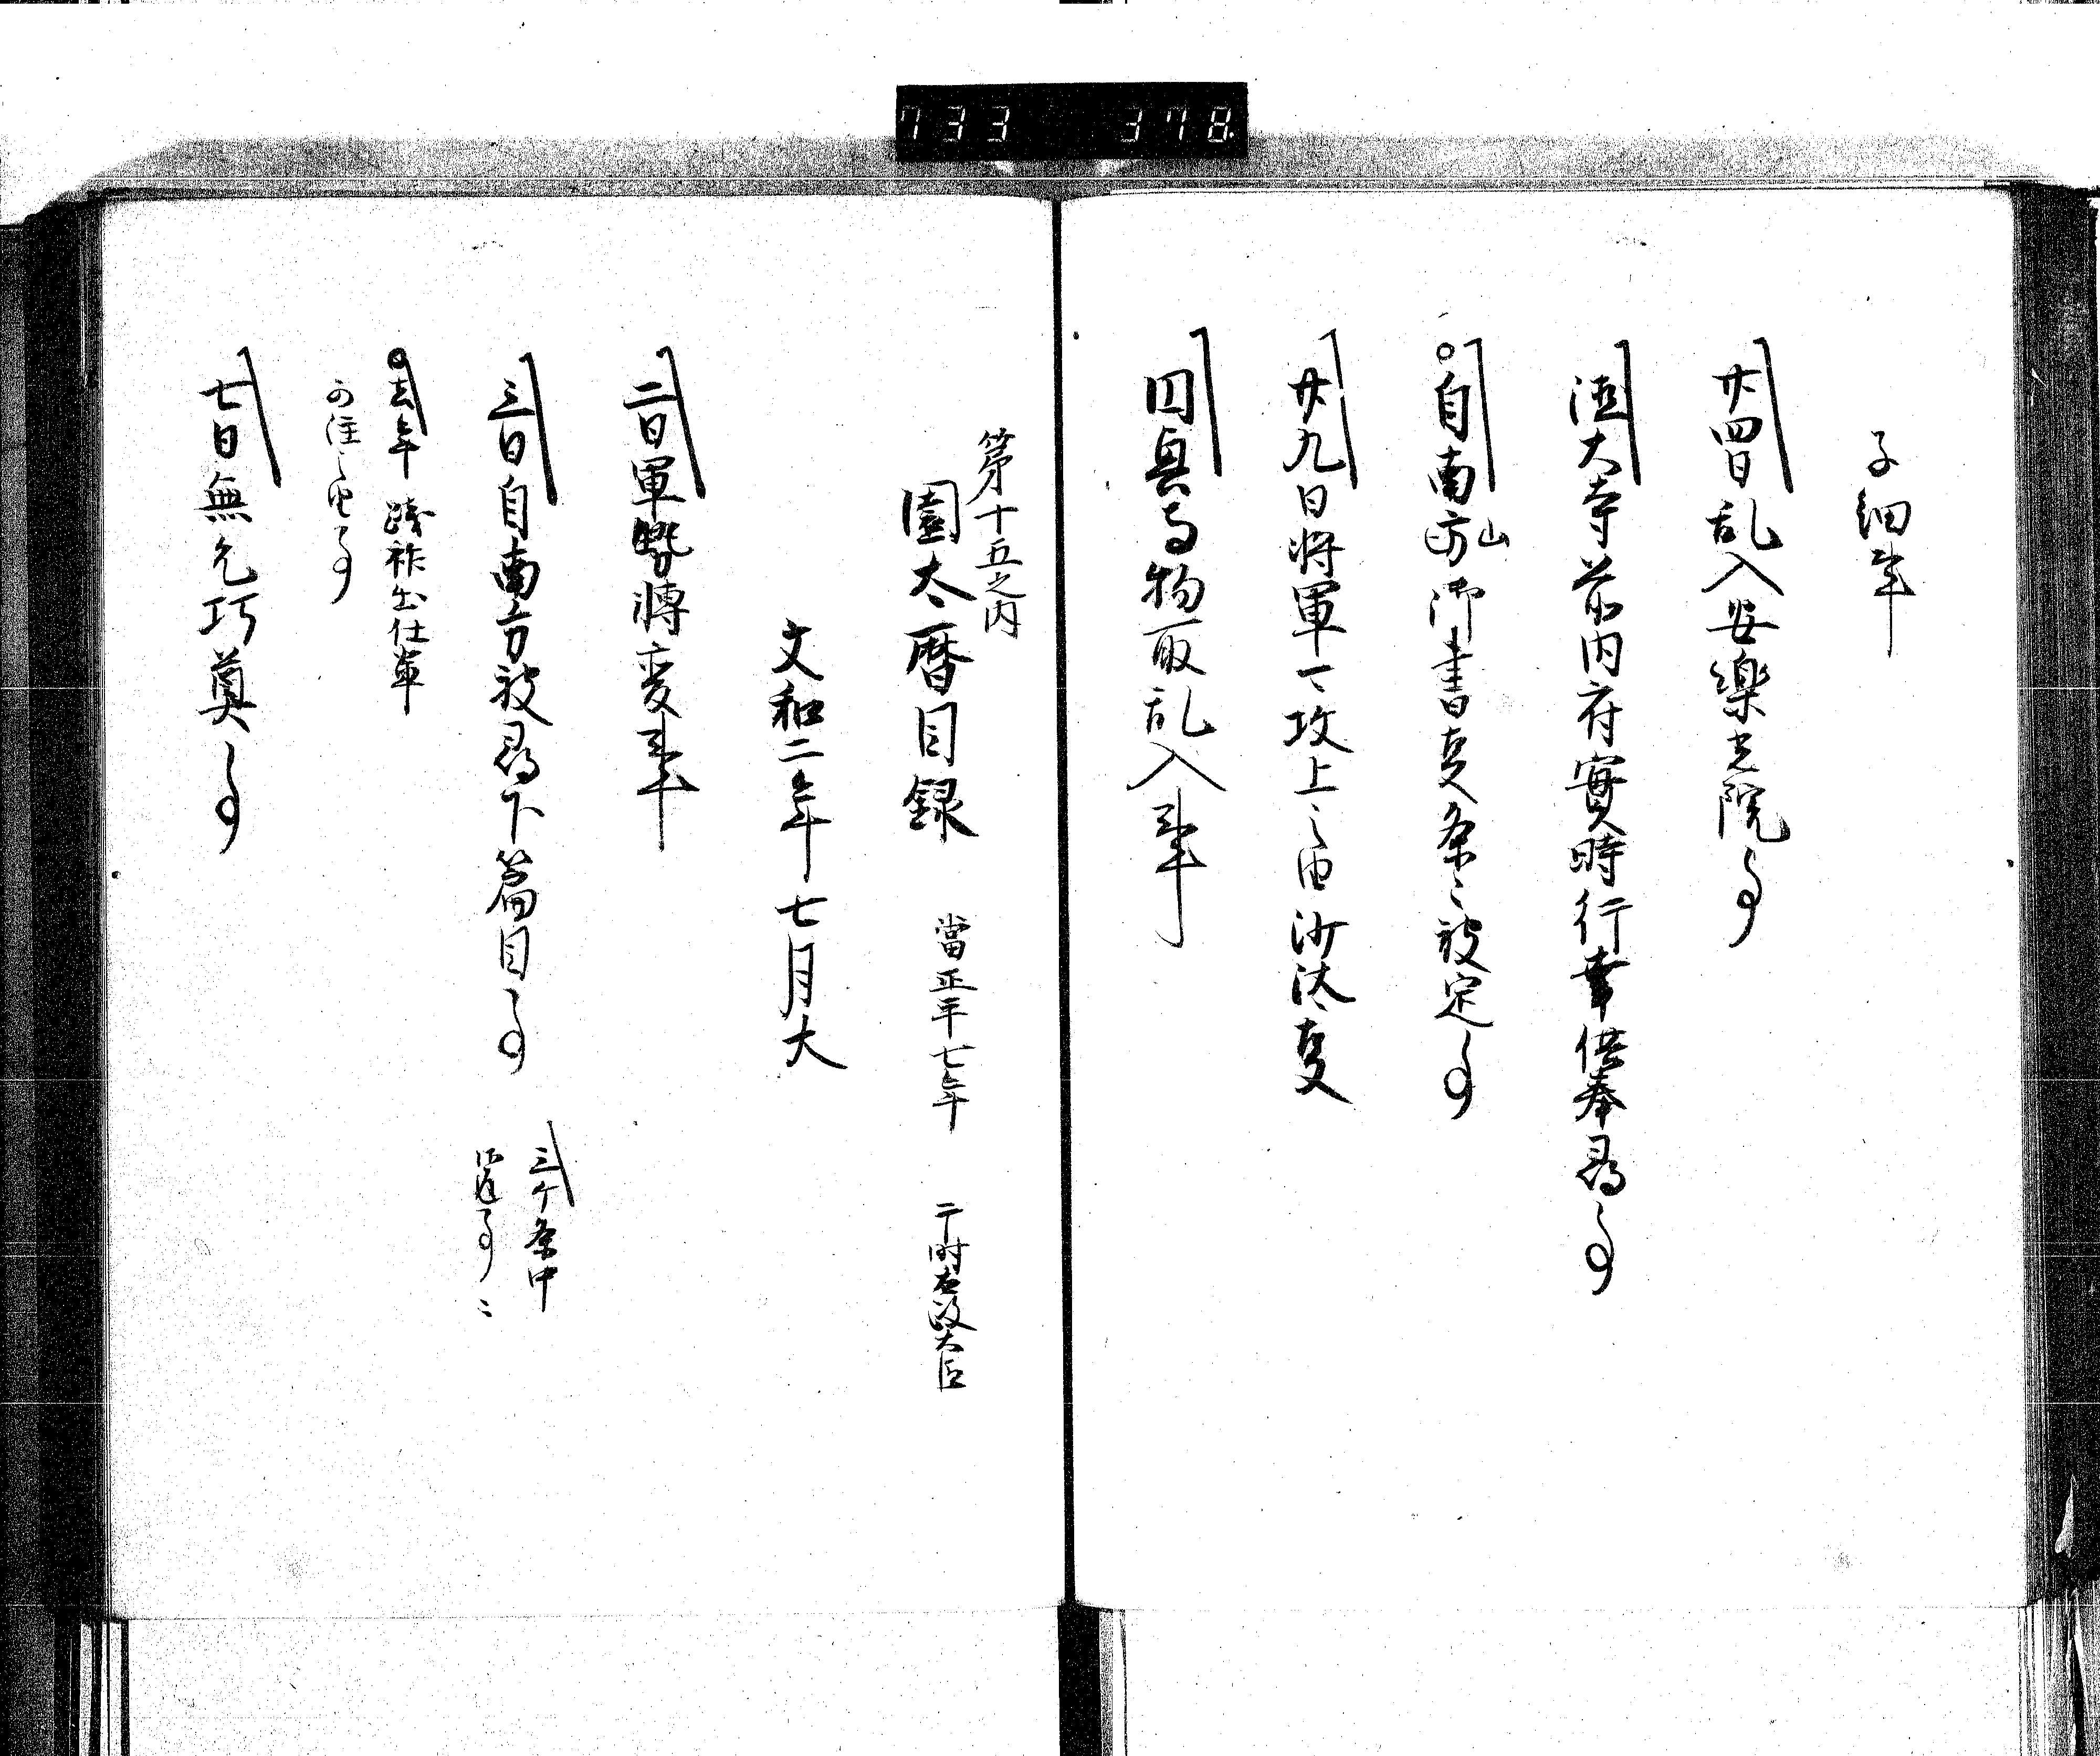 733 378
子細事
廿四日乱入安樂光院事
徳大寺前内府實時行幸供奉尋事
自南方山御書支条々被定事
廿九日将軍可攻上之由沙汰支
同兵具物取乱入事
第十五之内
園太暦目録 當正平七年 于時太政大臣
文和二年七月大
二日軍勢轉変事
三日自南方被尋下篇目事 三ケ条中
事
去年践祚出仕輩
可注之由事
七日無乞巧奠事